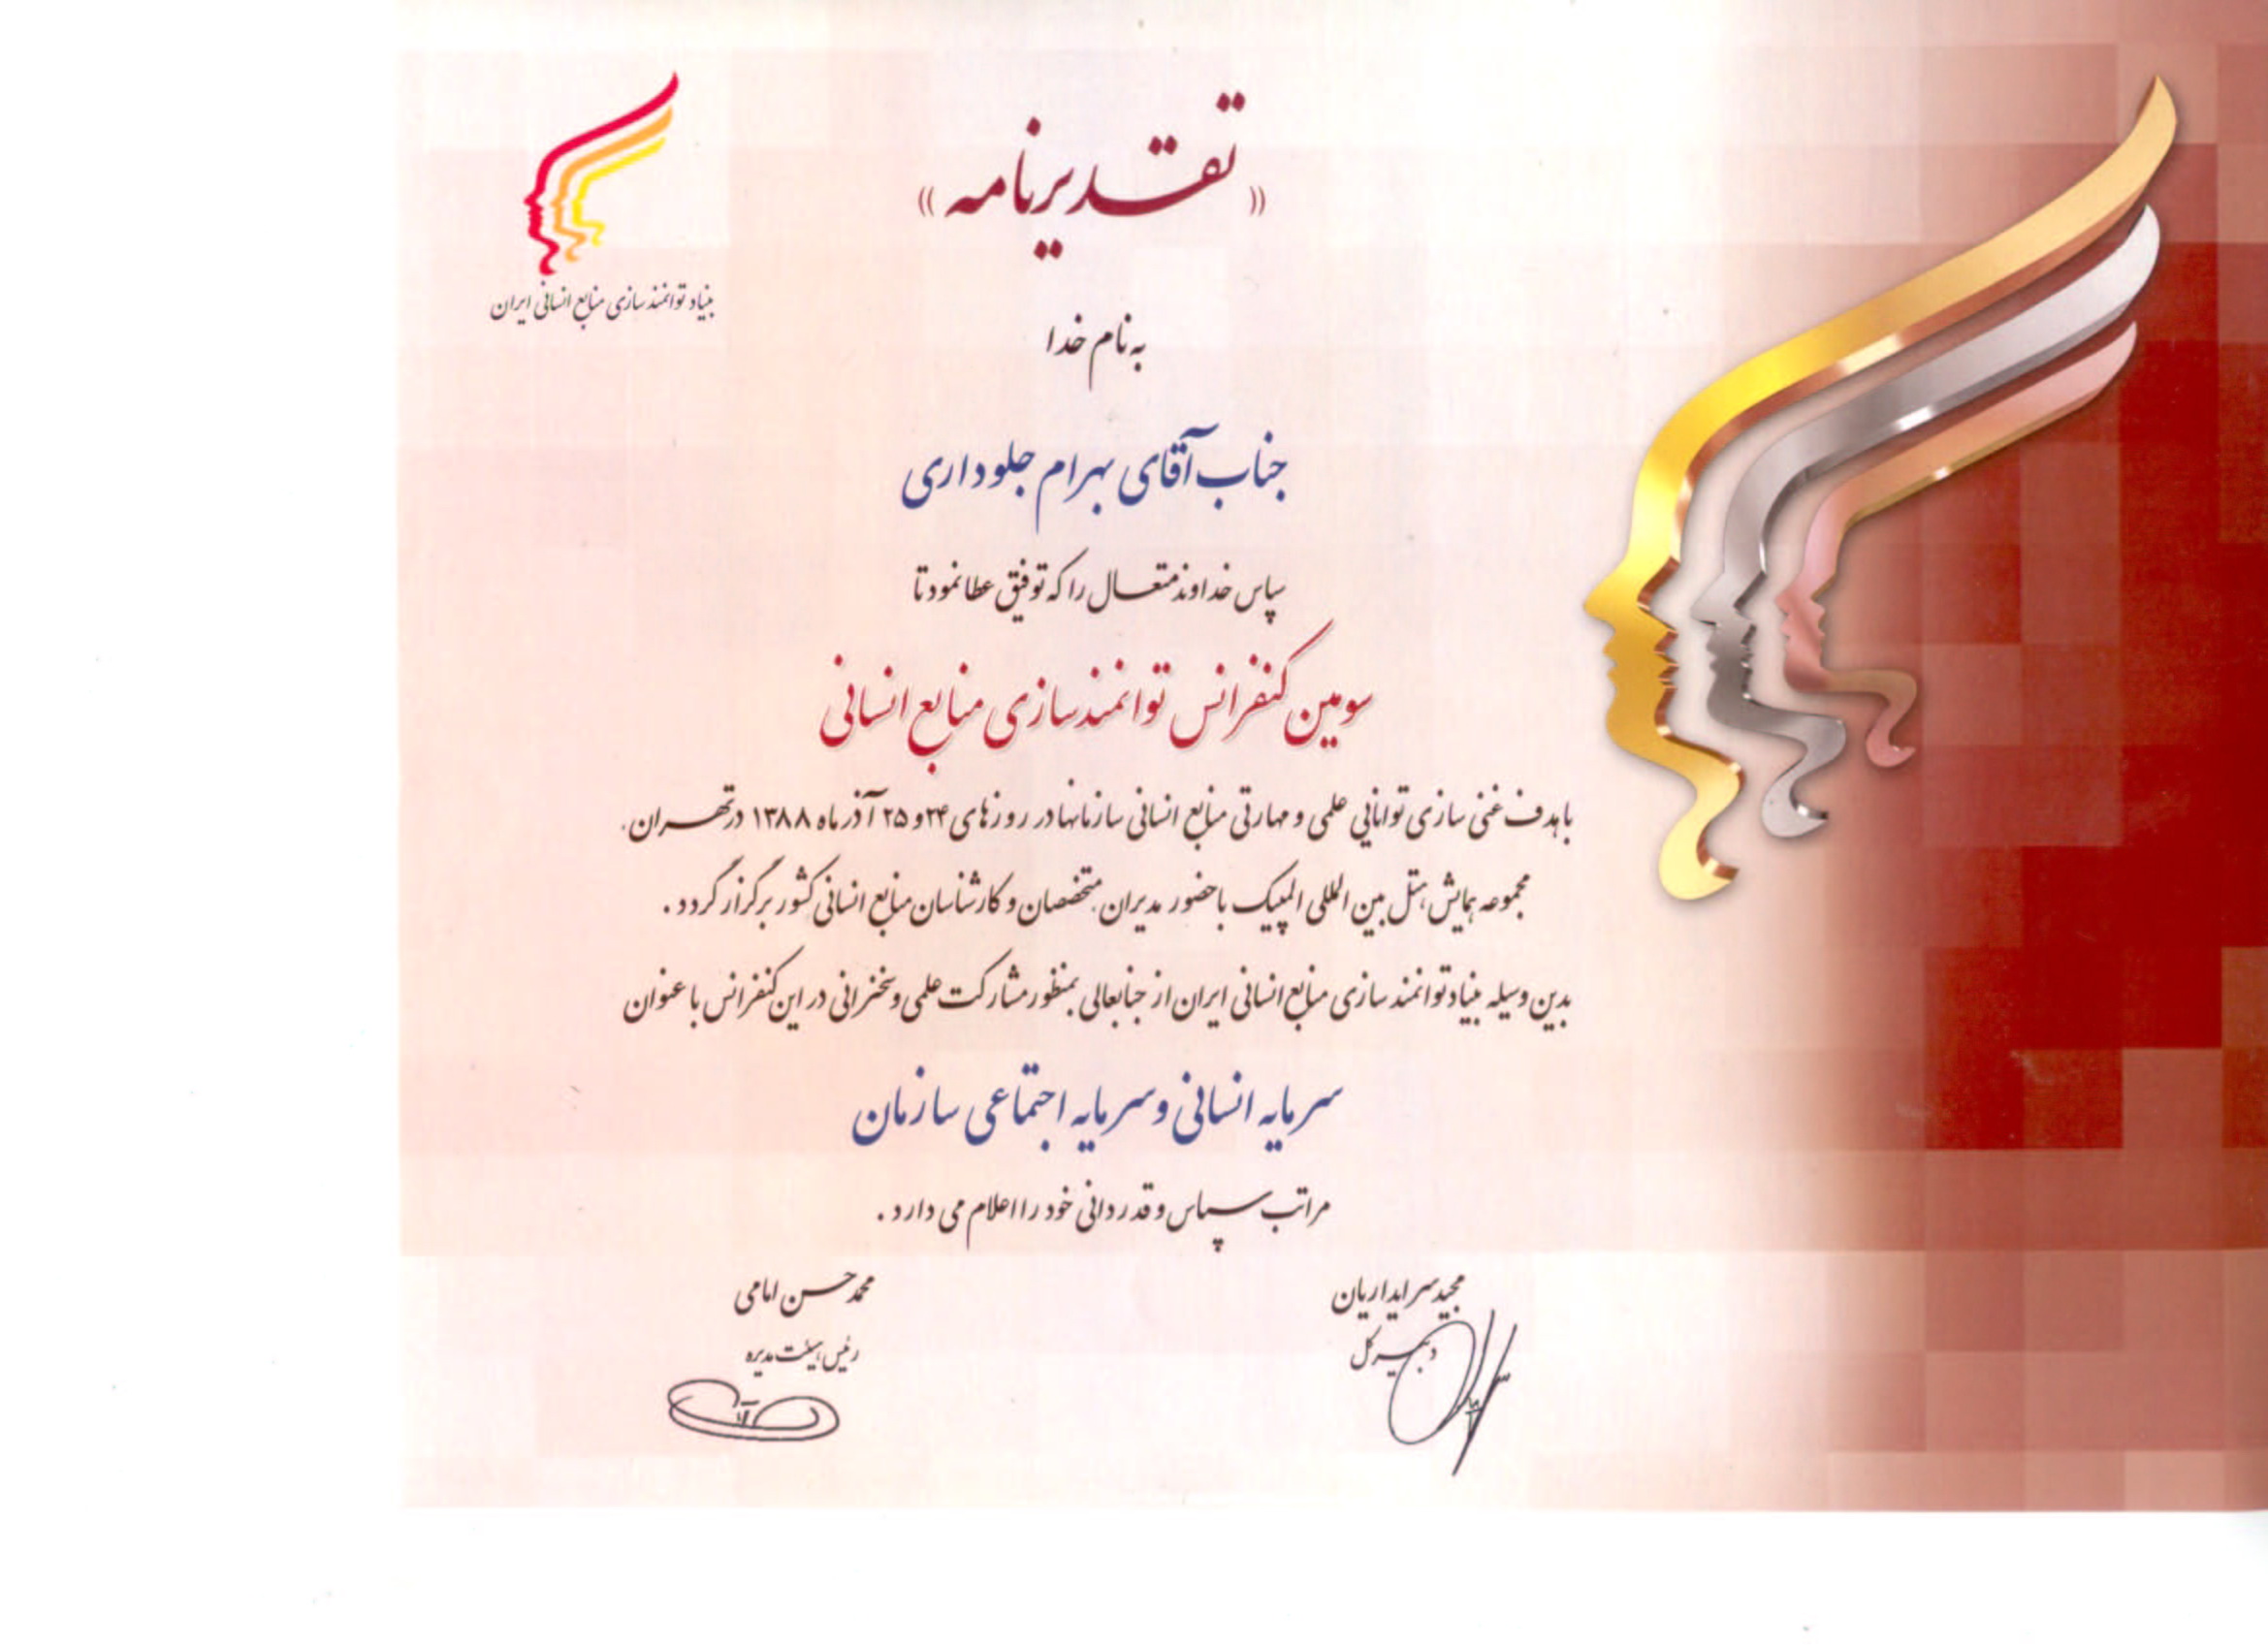 « تقدیرنامه »
بنیاد توانمندسازی منابع انسانی ایران
به نام خدا
جناب آقای بهرام جلوداری
سپاس خداوند متعال را که توفیق عطا نمود تا
سومین کنفرانس توانمندسازی منابع انسانی
با هدف غنی سازی توانایی علمی و مهارتی منابع انسانی سازمانها در روزهای ۲۴ و ۲۵ آذر ماه ۱۳۸۸ در تهران،
مجموعه همایش هتل بین المللی المپیک با حضور مدیران، متخصصان و کارشناسان منابع انسانی کشور برگزار گردد.
بدین وسیله بنیاد توانمند سازی منابع انسانی ایران از جنابعالی بمنظور مشارکت علمی و سخنرانی در این کنفرانس با عنوان
سرمایه انسانی و سرمایه اجتماعی سازمان
مراتب سپاس و قدردانی خود را اعلام می دارد.
مجید سرایداریان
دبیر کل
محمد حسن امامی
رئیس هیئت مدیره